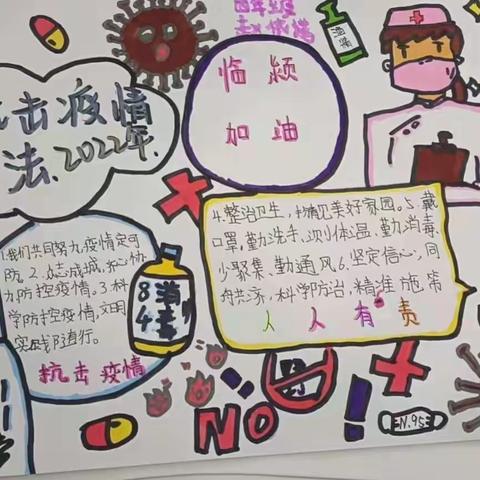 击疫情
法.2022年.
四年级
临颍
加油
消毒
1.我们共同努力,疫情定可
防。2.众志成城,齐心协
力防控疫情。3.科
学防控疫情,文明
实践随行。
抗击疫情
84
消毒
4.整治卫生,扮靓美好家园。5.戴
口罩,勤洗手,测体温、勤消毒、
少聚集、勤通风6.坚定信心、同
舟共济,科学防治,精准施策
人人有责
NO
N.95